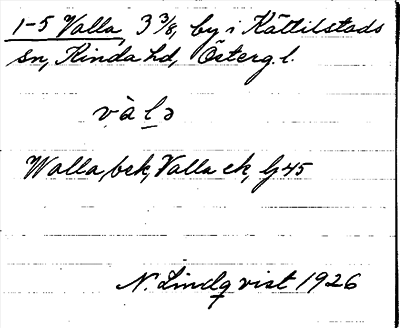 1-5 Valla, 3 3/8, by i Kättilstads
sn, Kinda hd, Österg. l.
và l̲ə
Walla, bek, Valla ek, G 45
N. Lindqvist 1926